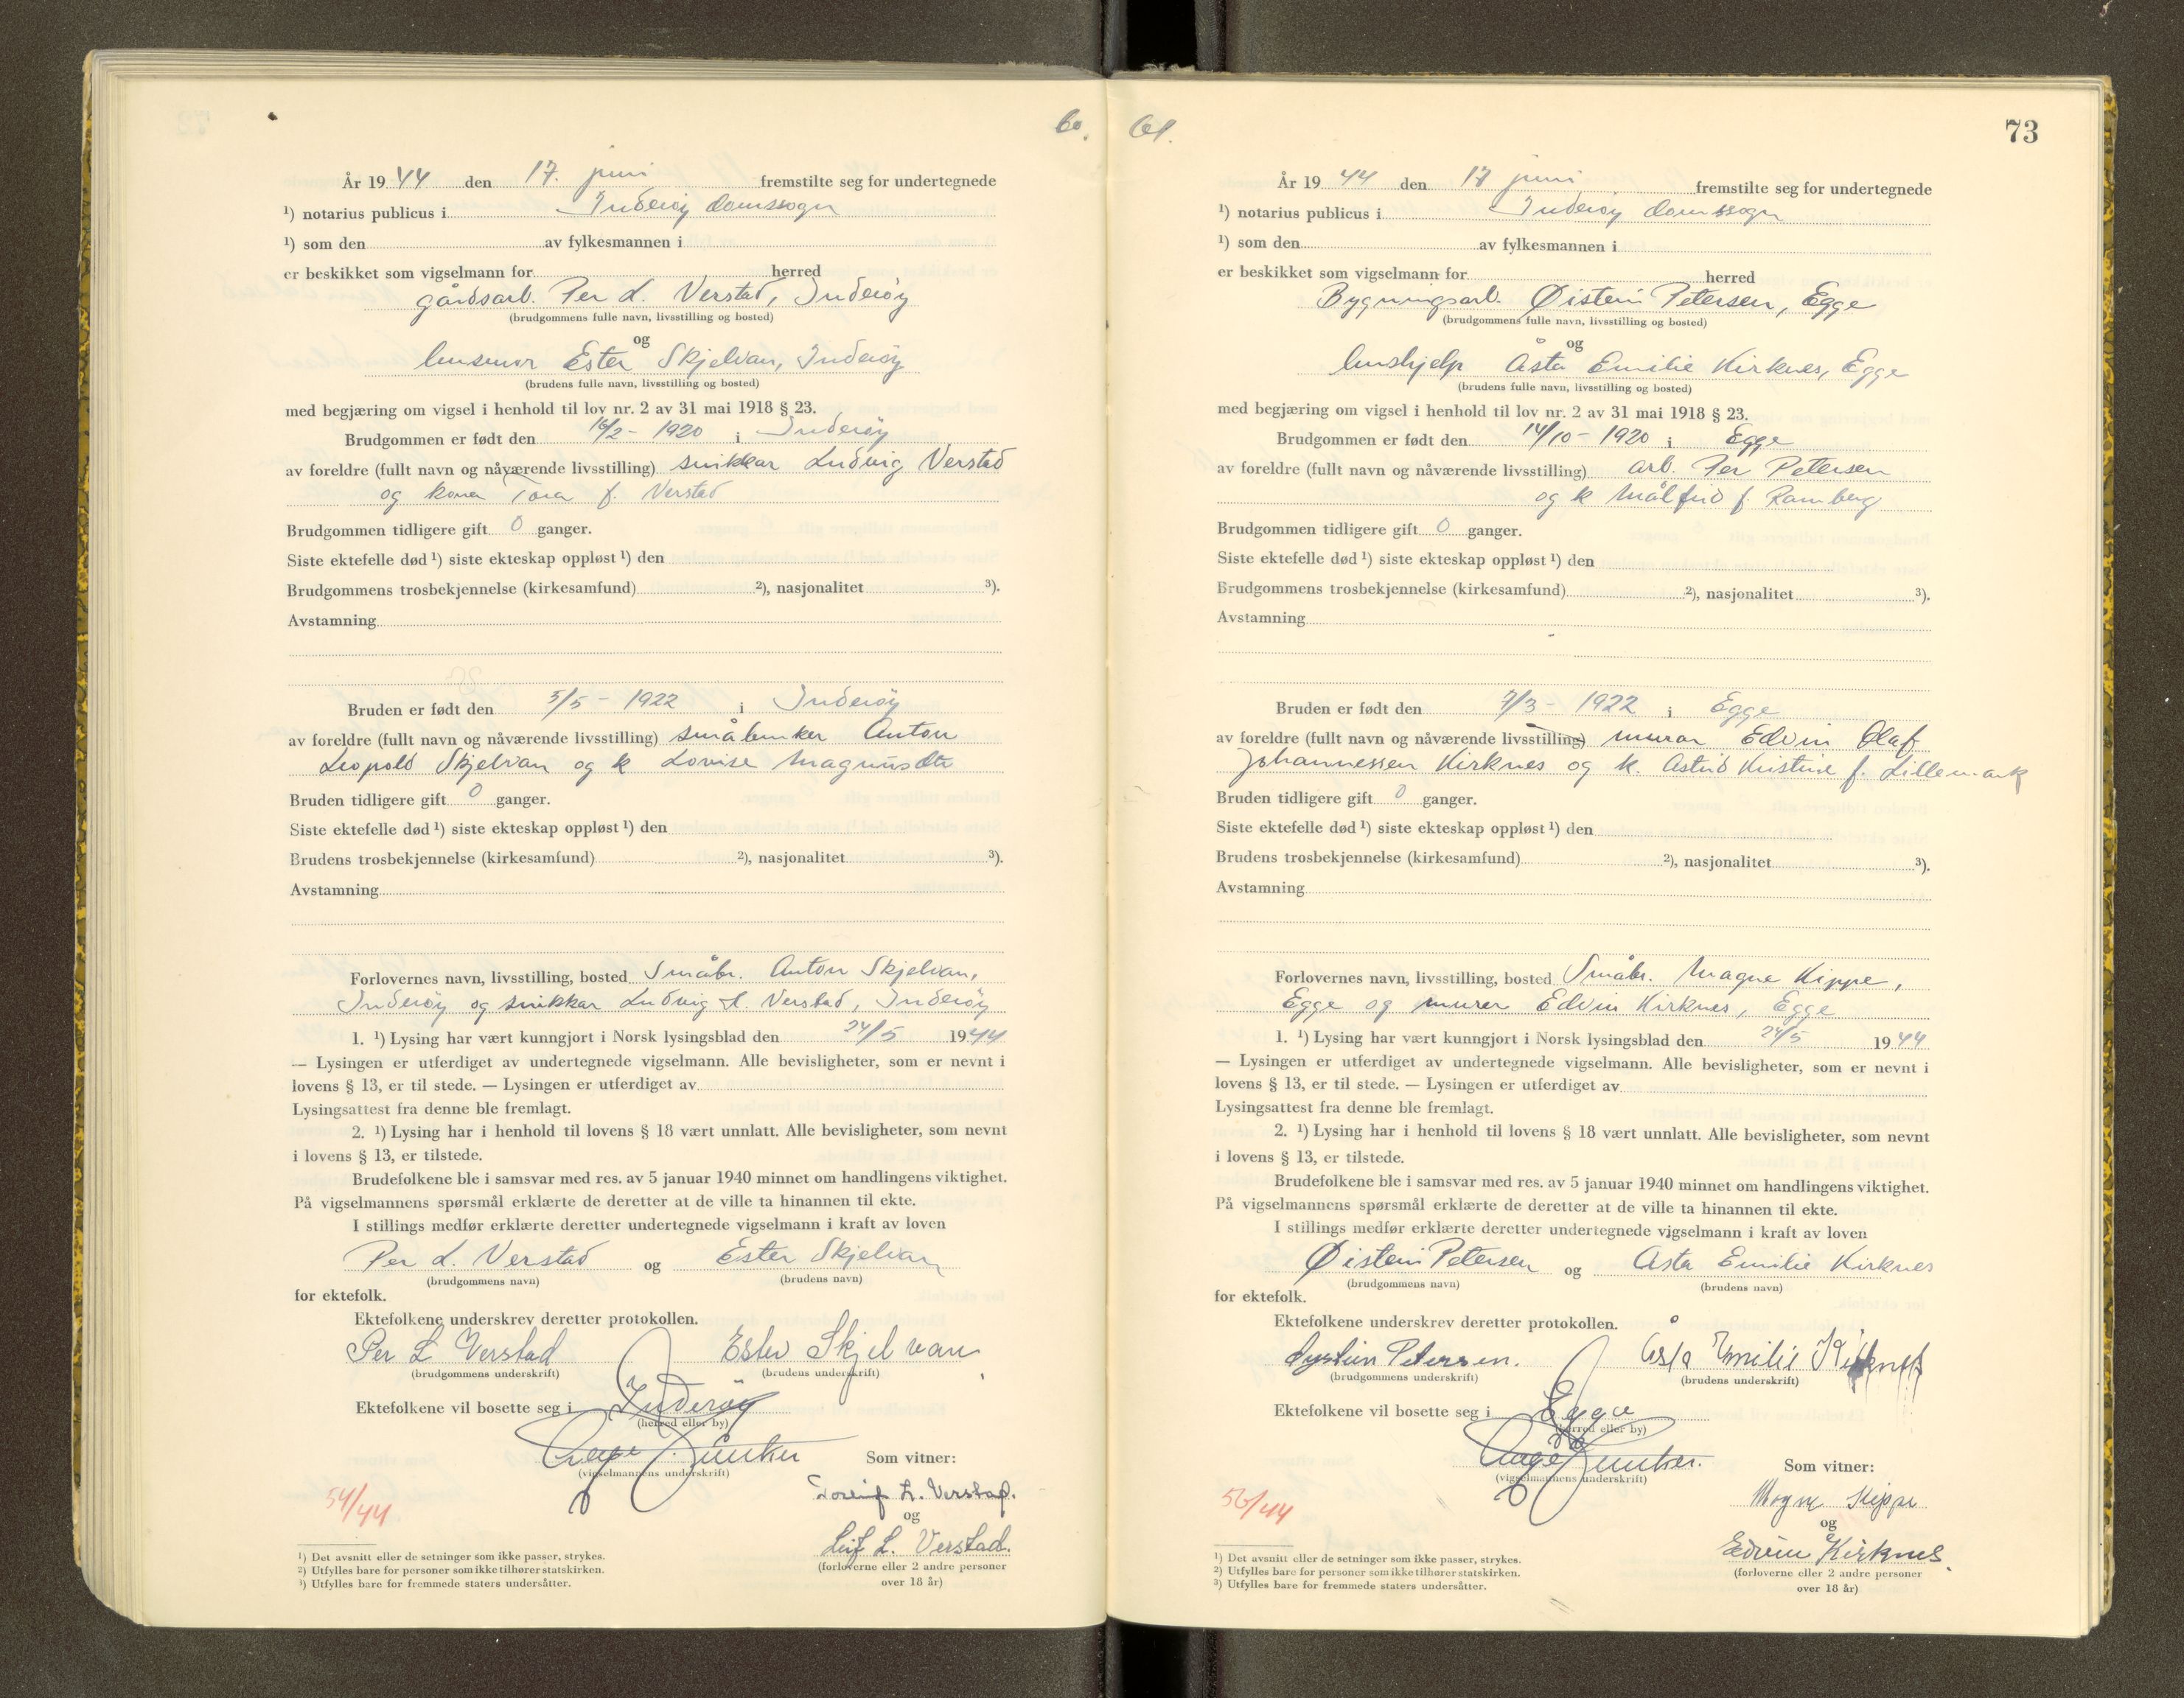 60.
År 1944 den 17. juni fremstilte seg for undertegnede
¹) notarius publicus i Inderøy domssogn
¹) som den av fylkesmannen i
er beskikket som vigselmann for herred
gårdsarb. Per L. Verstad, Inderøy
(brudgommens fulle navn, livsstilling og bosted)
og
husmor Ester Skjelvan, Inderøy
(brudens fulle navn, livsstilling og bosted)
med begjæring om vigsel i henhold til lov nr. 2 av 31 mai 1918 § 23.
Brudgommen er født den 16/2 - 1920 i Inderøy
av foreldre (fullt navn og nåværende livsstilling) snikkar Ludvig Verstad
og kona Tora f. Verstad
Brudgommen tidligere gift 0 ganger.
Siste ektefelle død ¹) siste ekteskap oppløst ¹) den
Brudgommens trosbekjennelse (kirkesamfund) ²), nasjonalitet ³).
Avstamning
Bruden er født den 5/5 - 1922 i Inderøy
av foreldre (fullt navn og nåværende livsstilling) småbruker Anton
Leopold Skjelvan og k Lovise Magnusdtr
Bruden tidligere gift 0 ganger.
Siste ektefelle død ¹) siste ekteskap oppløst ¹) den
Brudens trosbekjennelse (kirkesamfund) ²), nasjonalitet ³).
Avstamning
Forlovernes navn, livsstilling, bosted Småbr. Anton Skjelvan,
Inderøy og snikkar Ludvig L. Verstad, Inderøy
1. ¹) Lysing har vært kunngjort i Norsk lysingsblad den 24/5 1944
— Lysingen er utferdiget av undertegnede vigselmann. Alle bevisligheter, som er nevnt i
lovens § 13, er til stede. — Lysingen er utferdiget av
Lysingsattest fra denne ble fremlagt.
2. ¹) Lysing har i henhold til lovens § 18 vært unnlatt. Alle bevisligheter, som nevnt
i lovens § 13, er tilstede.
Brudefolkene ble i samsvar med res. av 5 januar 1940 minnet om handlingens viktighet.
På vigselmannens spørsmål erklærte de deretter at de ville ta hinannen til ekte.
I stillings medfør erklærte deretter undertegnede vigselmann i kraft av loven
Per L. Verstad og Ester Skjelvan
(brudgommens navn) (brudens navn)
for ektefolk.
Ektefolkene underskrev deretter protokollen.
Per L Verstad Ester Skjelvan
(brudgommens underskrift) (brudens underskrift)
Ektefolkene vil bosette seg i Inderøy
(herred eller by)
(vigselmannens underskrift)
Som vitner:
Torleif L. Verstad.
og
Leif L. Verstad.
(forloverne eller 2 andre personer
over 18 år)
54/44
¹) Det avsnitt eller de setninger som ikke passer, strykes.
²) Utfylles bare for personer som ikke tilhører statskirken.
³) Utfylles bare for fremmede staters undersåtter.
61. 73
År 1944 den 17 juni fremstilte seg for undertegnede
¹) notarius publicus i Inderøy domssogn
¹) som den av fylkesmannen i
er beskikket som vigselmann for herred
Bygningsarb. Øistein Petersen, Egge
(brudgommens fulle navn, livsstilling og bosted)
og
hushjelp Åsta Emilie Kirknes, Egge
(brudens fulle navn, livsstilling og bosted)
med begjæring om vigsel i henhold til lov nr. 2 av 31 mai 1918 § 23.
Brudgommen er født den 14/10 - 1920 i Egge
av foreldre (fullt navn og nåværende livsstilling) arb. Per Petersen
og k Målfrid f. Ramberg
Brudgommen tidligere gift 0 ganger.
Siste ektefelle død ¹) siste ekteskap oppløst ¹) den
Brudgommens trosbekjennelse (kirkesamfund) ²), nasjonalitet ³).
Avstamning
Bruden er født den 7/3 - 1922 i Egge
av foreldre (fullt navn og nåværende livsstilling) murar Edvin Olaf
Johannessen Kirknes og k. Astrid Kristine f. Lillemark
Bruden tidligere gift 0 ganger.
Siste ektefelle død ¹) siste ekteskap oppløst ¹) den
Brudens trosbekjennelse (kirkesamfund) ²), nasjonalitet ³).
Avstamning
Forlovernes navn, livsstilling, bosted Småbr. Magne Kippe,
Egge og murer Edvin Kirknes, Egge
1. ¹) Lysing har vært kunngjort i Norsk lysingsblad den 24/5 1944
— Lysingen er utferdiget av undertegnede vigselmann. Alle bevisligheter, som er nevnt i
lovens § 13, er til stede. — Lysingen er utferdiget av
Lysingsattest fra denne ble fremlagt.
2. ¹) Lysing har i henhold til lovens § 18 vært unnlatt. Alle bevisligheter, som nevnt
i lovens § 13, er tilstede.
Brudefolkene ble i samsvar med res. av 5 januar 1940 minnet om handlingens viktighet.
På vigselmannens spørsmål erklærte de deretter at de ville ta hinannen til ekte.
I stillings medfør erklærte deretter undertegnede vigselmann i kraft av loven
Øistein Petersen og Åsta Emilie Kirknes
(brudgommens navn) (brudens navn)
for ektefolk.
Ektefolkene underskrev deretter protokollen.
Øystein Petersen. Åsta Emilie Kirknes
(brudgommens underskrift) (brudens underskrift)
Ektefolkene vil bosette seg i Egge
(herred eller by)
(vigselmannens underskrift)
Som vitner:
Magne Kippe
og
Edvin Kirknes.
(forloverne eller 2 andre personer
over 18 år)
¹) Det avsnitt eller de setninger som ikke passer, strykes.
²) Utfylles bare for personer som ikke tilhører statskirken.
³) Utfylles bare for fremmede staters undersåtter.